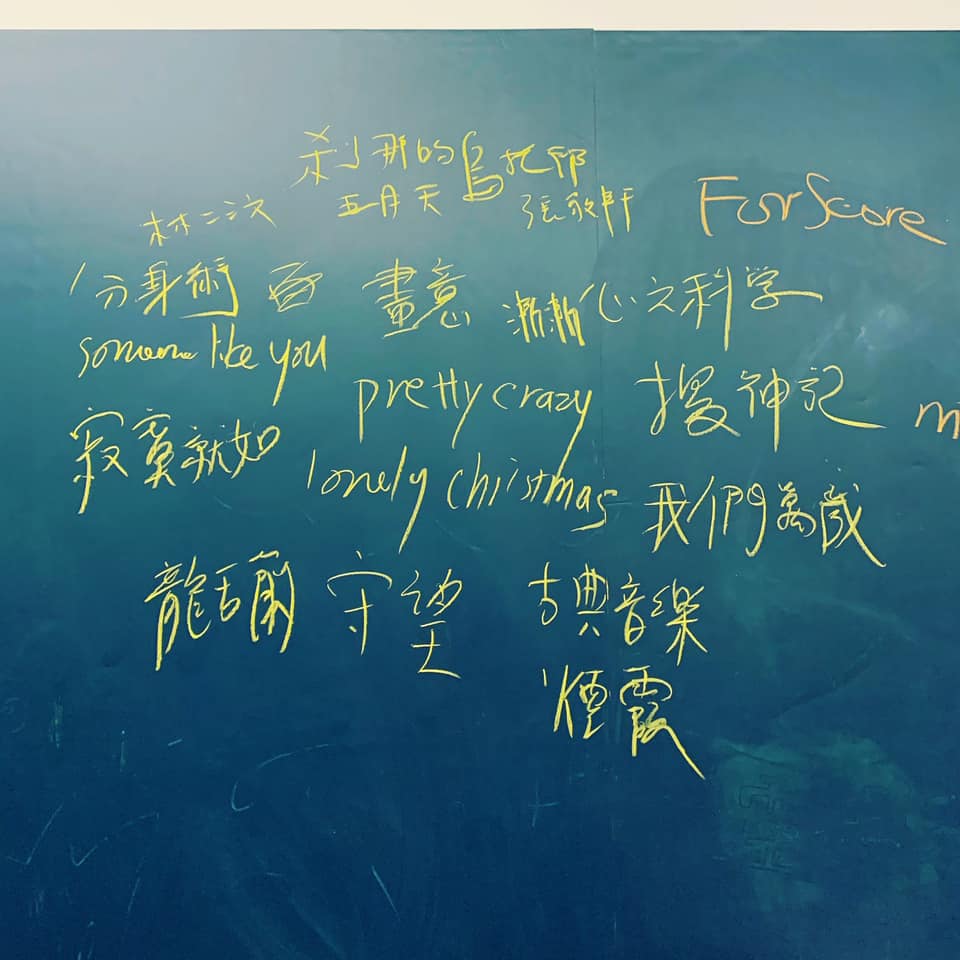 刹那的烏托邦
林二汶 五月天 張敬軒 ForScore
分身術 畫意 漸漸 心之科学
someone like you
pretty crazy 搜神記
寂寞就如
lonely christmas 我們萬歲
龍舌蘭 守望 古典音楽
煙霞